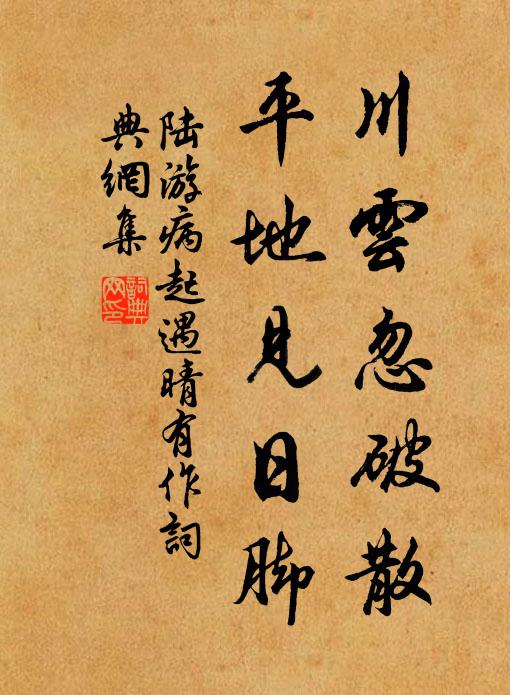 川雲忽破散
平地見日脚
陆游病起遇晴有作詞
典網集
詞典网印